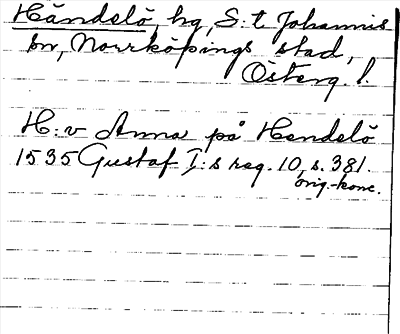 Händelö, hg, S:t Johannis
sn, Norrköpings stad,
Österg. l.
H:v Anna på Hendelö
1535 Gustaf I:s reg. 10, s. 381.
orig.-konc.